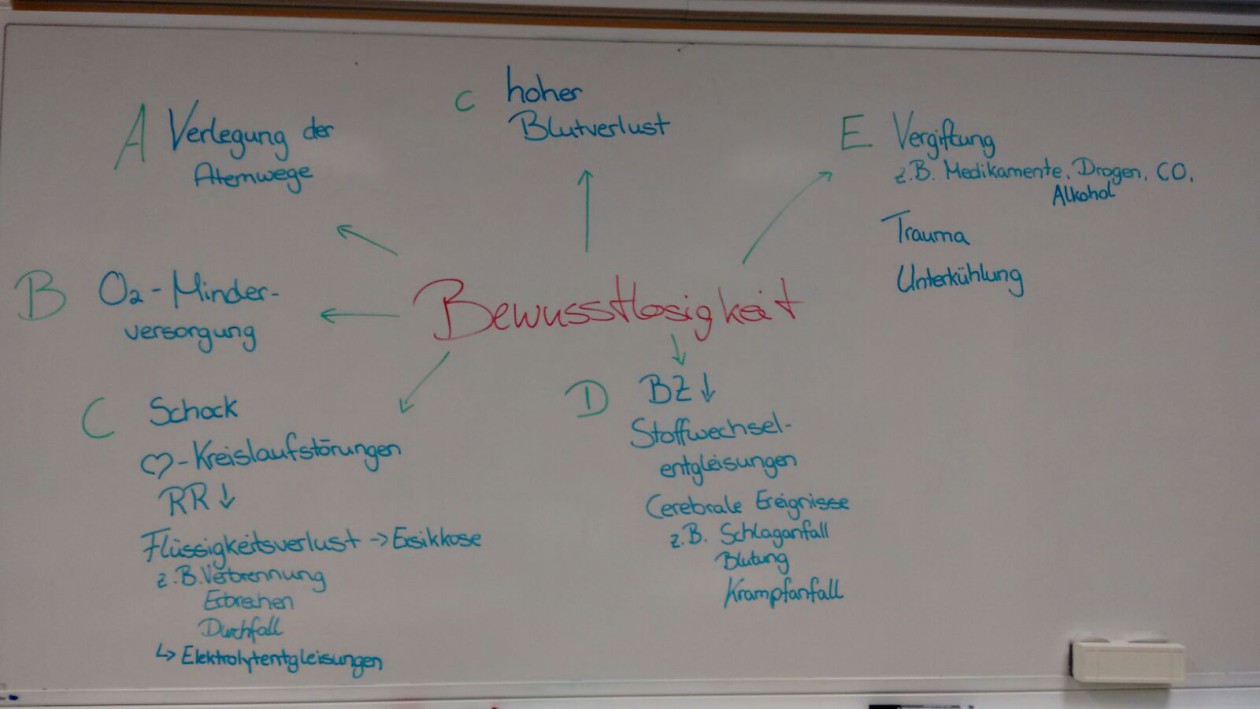 A Verlegung der
Atemwege
B O2-Minder-
versorgung
C Schock
♡-Kreislaufstörungen
RR ↓
Flüssigkeitsverlust → Exsikkose
z.B. Verbrennung
Erbrechen
Durchfall
↳ Elektrolytentgleisungen
C hoher
Blutverlust
Bewusstlosigkeit
D BZ ↓
Stoffwechsel-
entgleisungen
Cerebrale Ereignisse
z.B. Schlaganfall
Blutung
Krampfanfall
E Vergiftung
z.B. Medikamente, Drogen, CO,
Alkohol
Trauma
Unterkühlung